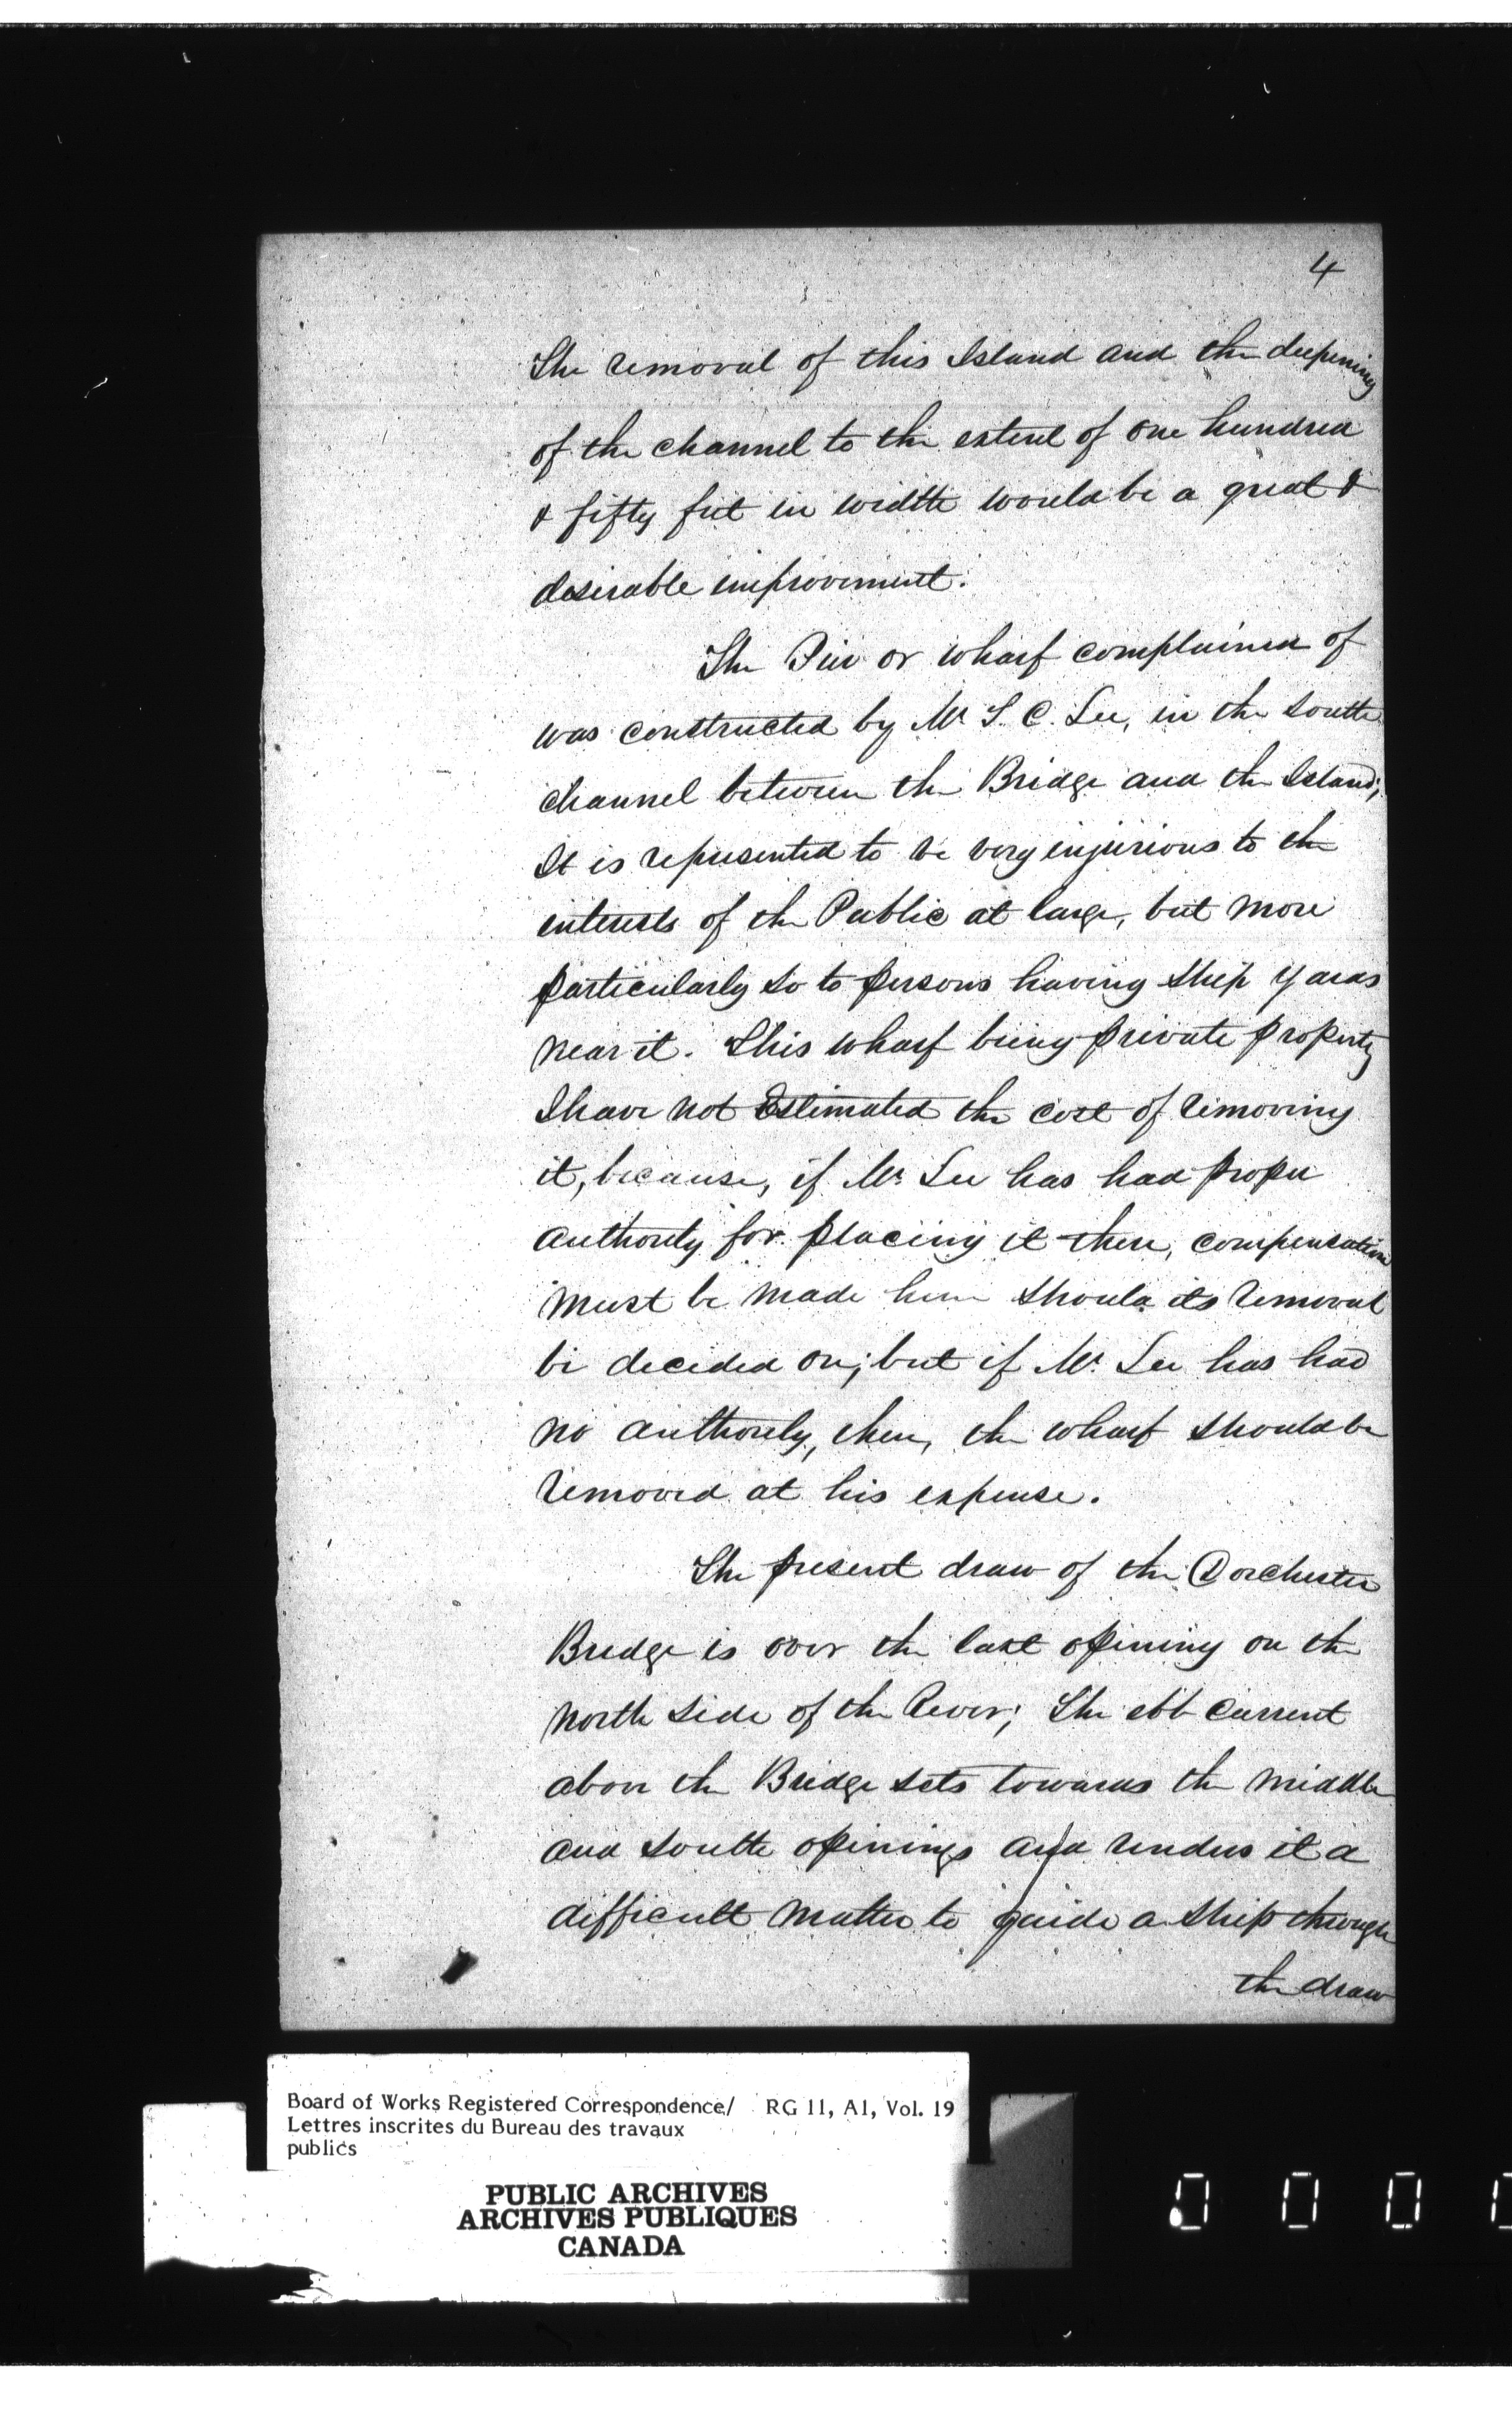 4
The removal of this Island and the deepening
of the channel to the extent of one hundred
& fifty feet in width would be a great &
desirable improvement.
The Pier or wharf complained of
was constructed by Mr. T. C. Lee, in the South
channel between the Bridge and the Island;
It is represented to be very injurious to the
interests of the Public at large, but more
particularly so to persons having ship yards
near it. This wharf being private property
I have not Estimated the cost of removing
it, because, if Mr. Lee has had proper
authority for placing it there, compensation
must be made him should its removal
be decided on; but if Mr. Lee has had
no authority, then, the wharf should be
removed at his expense.
The present draw of the Dorchester
Bridge is over the last opening on the
North side of the River; The ebb current
above the Bridge sets towards the middle
and South openings and renders it a
difficult matter to guide a ship through
the draw
Board of Works Registered Correspondence/ RG 11, A1, Vol. 19
Lettres inscrites du Bureau des travaux
publics
PUBLIC ARCHIVES
ARCHIVES PUBLIQUES
CANADA
0 0 0